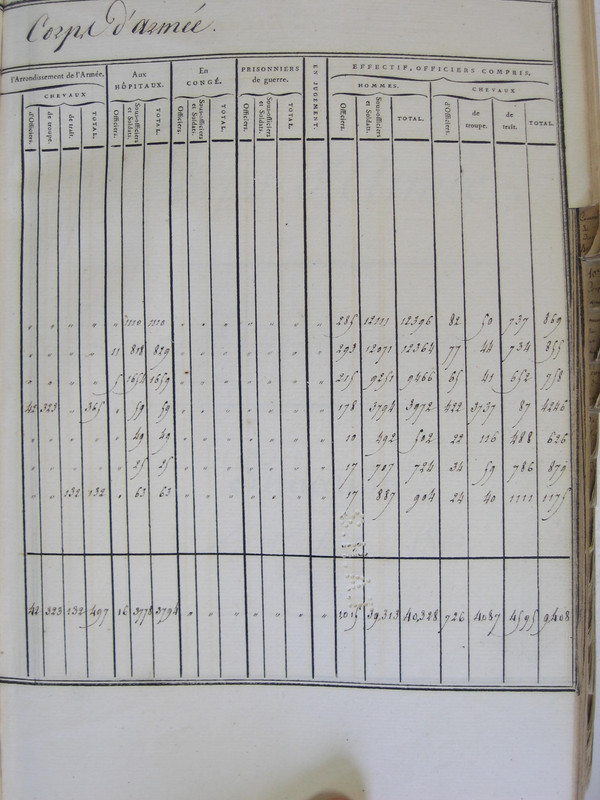 Corps d'armée.
l'Arrondissement de l'Armée. Aux HÔPITAUX. En CONGÉ. PRISONNIERS de guerre. EN JUGEMENT. EFFECTIF, OFFICIERS COMPRIS.
CHEVAUX HOMMES. CHEVAUX
d'Officiers. de troupe. de trait. TOTAL. Officiers. Sous-officiers et Soldats. TOTAL. Officiers. Sous-officiers et Soldats. TOTAL. Officiers. Sous-officiers et Soldats. TOTAL. Officiers. Sous-officiers et Soldats. TOTAL. d'Officiers. de troupe. de trait. TOTAL.
" " " " " 1110 1110 " " " " " " " 285 12111 12396 82 50 737 869
" " " " 11 818 829 " " " " " " " 293 12071 12364 77 44 734 855
" " " " 5 1654 1659 " " " " " " " 215 9251 9466 65 41 652 758
42 323 " 365 " 59 59 " " " " " " " 178 3794 3972 422 3737 87 4246
" " " " " 49 49 " " " " " " " 10 492 502 22 116 488 626
" " " " " 25 25 " " " " " " " 17 707 724 34 59 786 879
" " 132 132 " 63 63 " " " " " " " 17 887 904 24 40 1111 1175
42 323 132 497 16 3778 3794 " " " " " " " 1015 39,313 40,328 726 4087 4595 9408